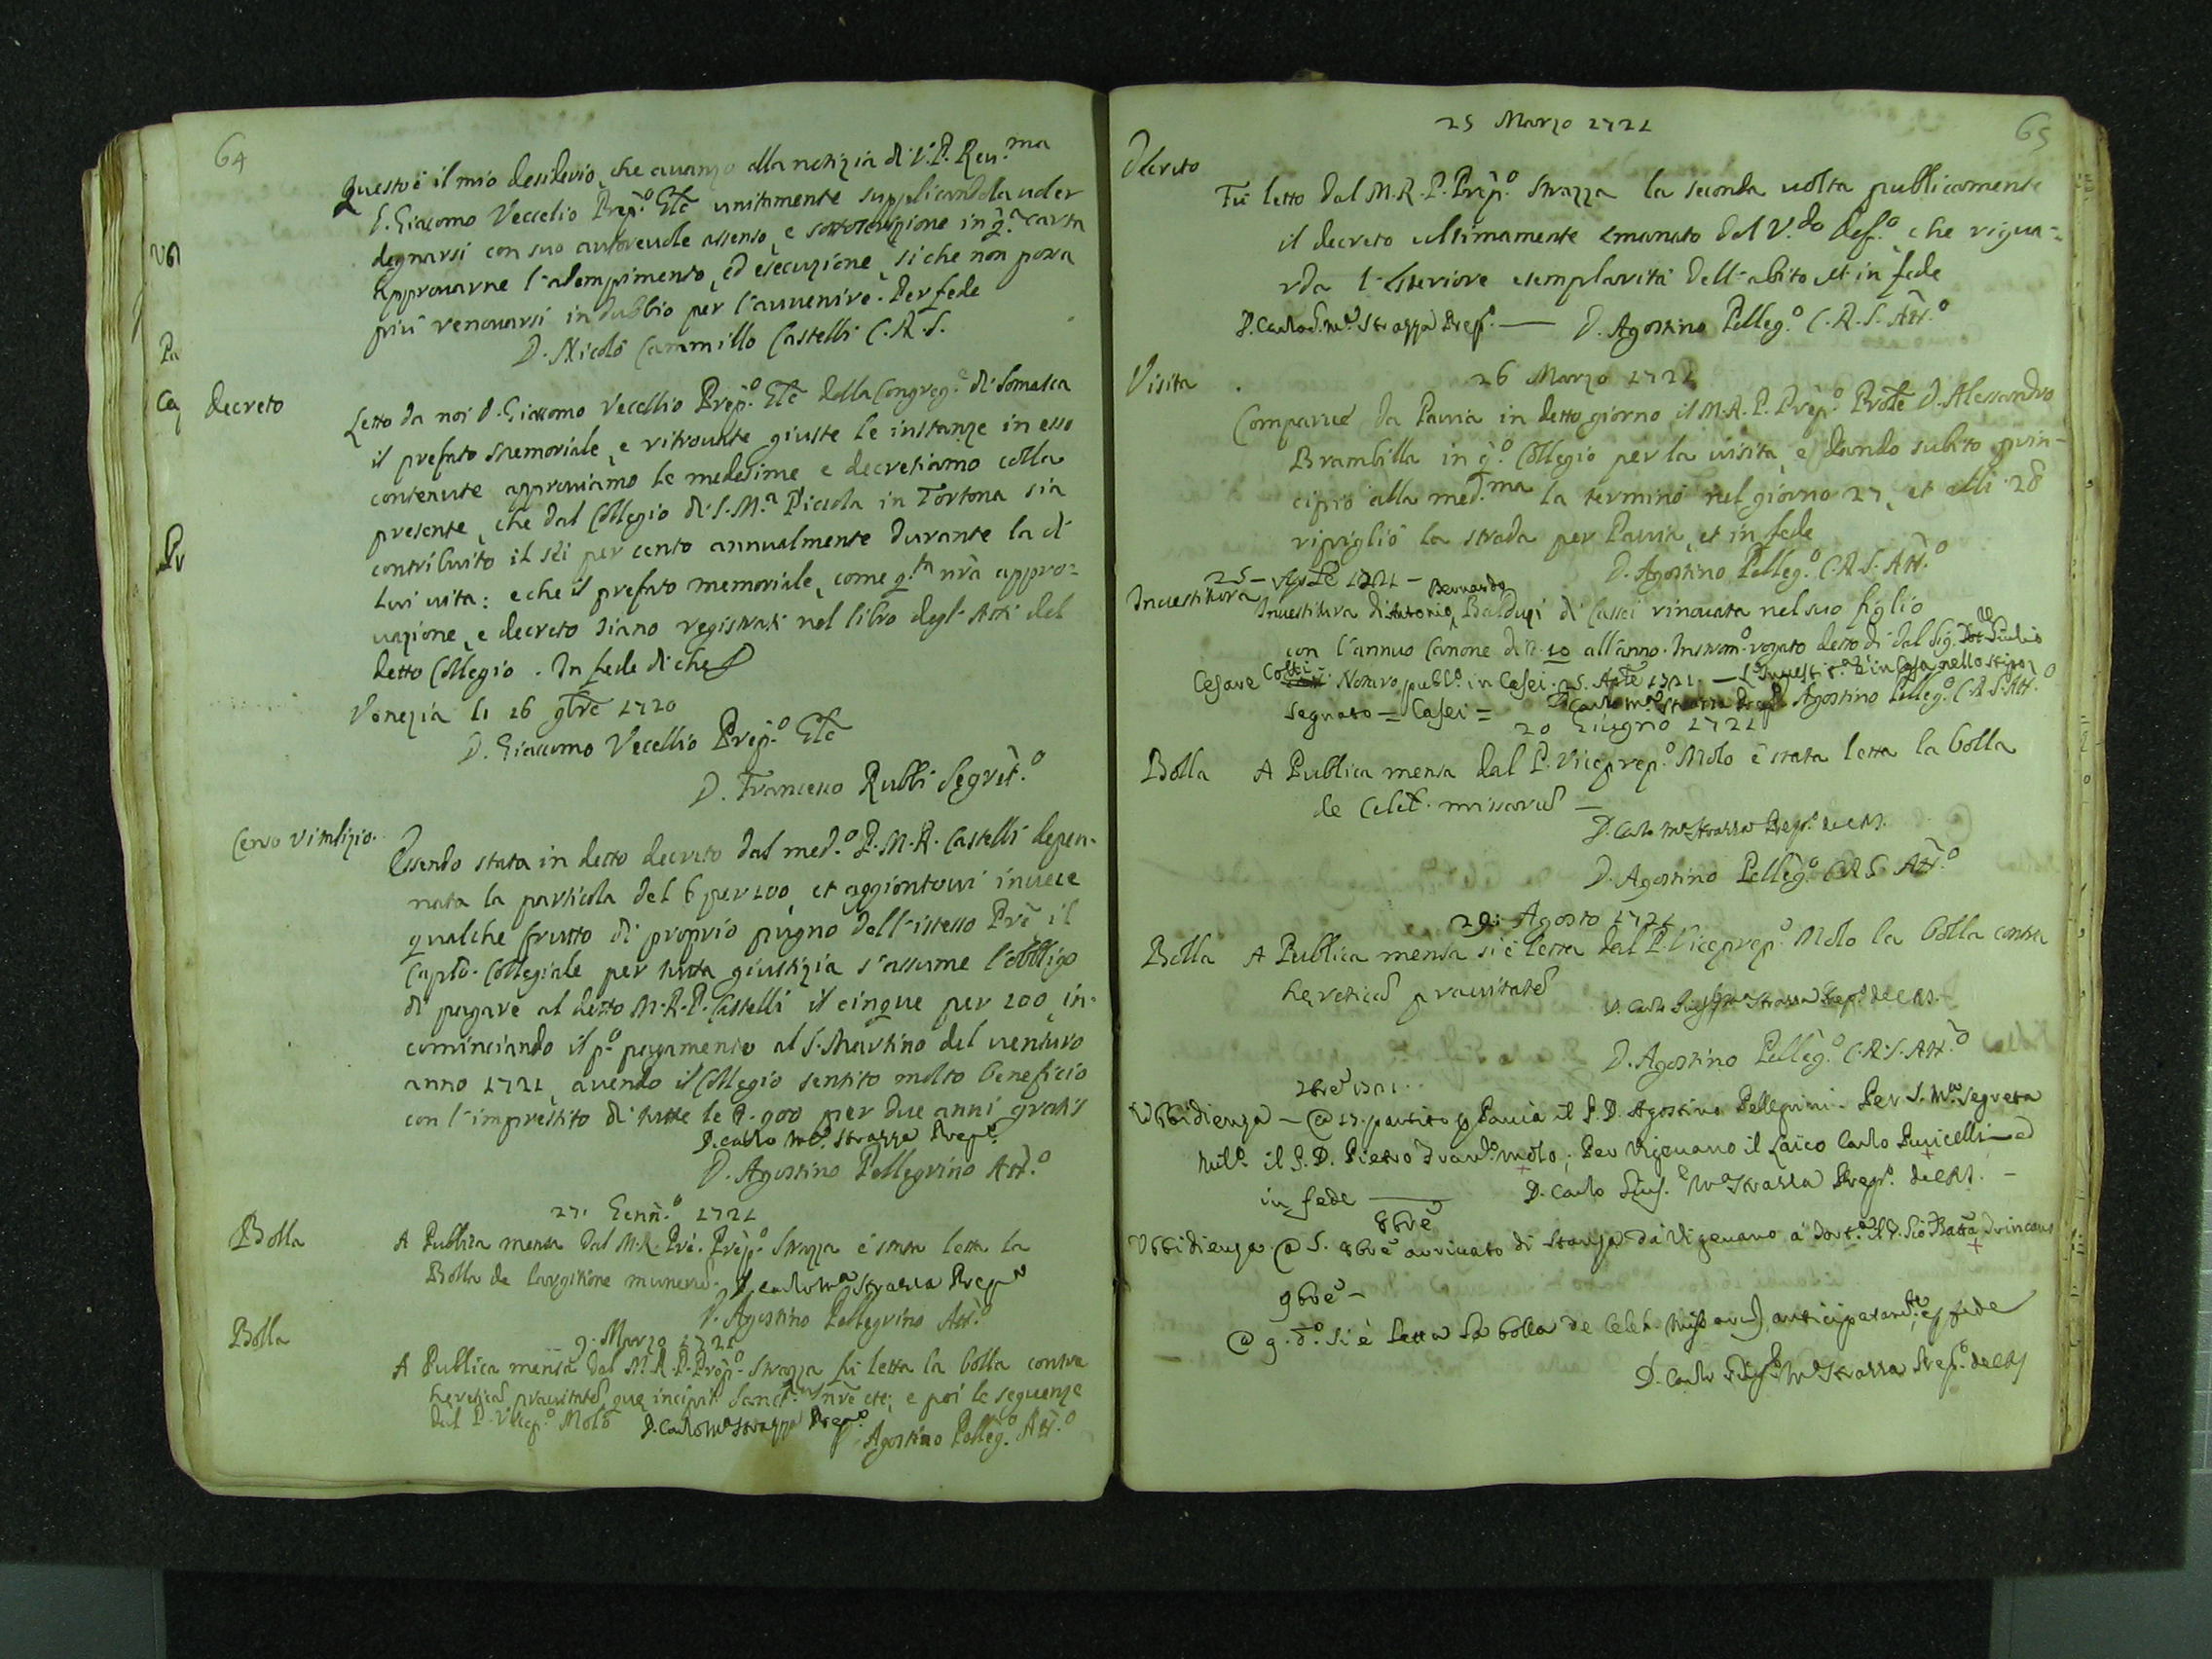 64
Questo è il mio desiderio, che avanzo alla notizia di V. P. Rev.ma
Giacomo Veccelio Prep.o Gle unitamente supplicandola voler
degnarsi con suo autorevole assenso, e sottoscrizione in q.a carta
approvarne l'adempimento, ed esecuzione, si che non possa
più renovarsi in dubbio per l'avvenire. Per fede
D. Nicolò Cammillo Castelli C.R.S.
decreto
Letto da noi D. Giacomo Vecellio Prep.o Gle della Congreg.e di Somasca
il prefato memoriale, e ritrovate giuste le instanze in esso
contenute approviamo le medesime e decretiamo colla
presente, che dal Collegio di S. M.a Piccola in Tortona sia
contribuito il sei per cento annualmente durante la di
lui vita: e che il prefato memoriale, come q.ta nra appro=
vazione, e decreto siano registrati nel libro degl'Atti del
detto Collegio. In fede di che
Venezia li 26 9bre 1720
D. Giacomo Vecellio Prep.o Gle
D. Francesco Rubbi Segret.o
Censo vitalizio.
Essendo stata in detto decreto dal med.o P. M. R. Castelli depen-
nata la particola del 6 per 100, et aggiontovi invece
qualche frutto di proprio pugno dell'istesso Pre, il
Caplo. Collegiale per tutta giustizia s'assume l'obbligo
di pagare al detto M.R.P. Castelli il cinque per 100, in-
cominciando il p.o pagamento al S. Martino del venturo
anno 1721, avendo il Collegio sentito molto beneficio
con l'imprestito di tutte le 900 per due anni gratis
D. Carlo M.a Strazza Prep.o
D. Agostino Pellegrino Att.o
27. Genn.o 1721
Bolla
A Publica mensa dal M.R. Pre. Prep.o Strazza è stata letta la
Bolla de largitione munerum. D. Carlo M.a Strazza Prep.o
D. Agostino Pellegrino Att.o
9. Marzo 1721
Bolla
A Publica mensa dal M.R.P. Prep.o Strazza fu letta la bolla contra
hereticam pravitatem, que incipit Sanct.mus nre etc; e poi le seguenze
dal P. Vicep.o Molo D. Carlo M.a Strazza Prep.o
D. Agostino Pelleg.o Att.o
65
25 Marzo 1721
Decreto
Fù letto dal M.R.P. Prep.o Strazza la seconda volta publicamente
il decreto ultimamente emanato dal V.do def.o, che rigua=
rda l'esteriore esemplarità dell'abito et in fede
D. Carlo M.a Strazza Prep.o — D. Agostino Pelleg.o C.R.S. Att.o
26 Marzo 1721
Visita
Comparve da Pavia in detto giorno il M.R.P. Prep.o Prole D. Alessandro
Brambilla in q.o Collegio per la visita, e dando subito prin-
cipio alla med.ma la terminò nel giorno 27, et alli 28
ripigliò la strada per Pavia, et in fede
D. Agostino Pelleg.o C.R.S. Att.o
25 - Aple 1721 -
Investitura
Investitura di Antonio Bernardo Balduzi di Casei rinovata nel suo figlio
con l'annuo Canone di 10 all'anno. Instrom.o rogato detto di dal Sig. Dot. Giulio
Cesare Cotti Notaro publ.o in Casei. 25. Aple 1721. — L'Invest.ra è in Casa nello stipo
segnato = Casei = D. Carlo M.a Strazza Prep.o Agostino Pelleg.o C.R.S. Att.o
20 Giugno 1721
Bolla
A Publica mensa dal P. Viceprep.o Molo è stata letta la bolla
de Celeb. missarum —
D. Carlo M.a Strazza Prep.o de C.R.S.
D. Agostino Pelleg.o C.R.S. Att.o
29: Agosto 1721
Bolla
A Publica mensa si è letta dal P. Viceprep.o Molo la bolla contra
hereticam pravitatem
D. Carlo M.a Strazza Prep.o de C.R.S.
D. Agostino Pelleg.o C.R.S. Att.o
7bre 1721.
Ubbidienza — @ 17. partito p Pavia il P. D. Agostino Pellegrini. Per S. M.a Segreta
Mil.o il P. D. Pietro Fran.o Molo; Per Vigevano il Laico Carlo Puricelli ed
in fede — D. Carlo Gius.e M.a Strazza Prep.o de C.R.S. —
8bre
Ubbidienza @ 5. 8bre arrivato di stanza da Vigevano à Tort.a il P. Gio Batta
9bre —
@ 9. d.o si è letta la bolla de Celeb. Missarum anticipatam.te, e p fede
D. Carlo Gius.e M.a Strazza Prep.o de C.R.S